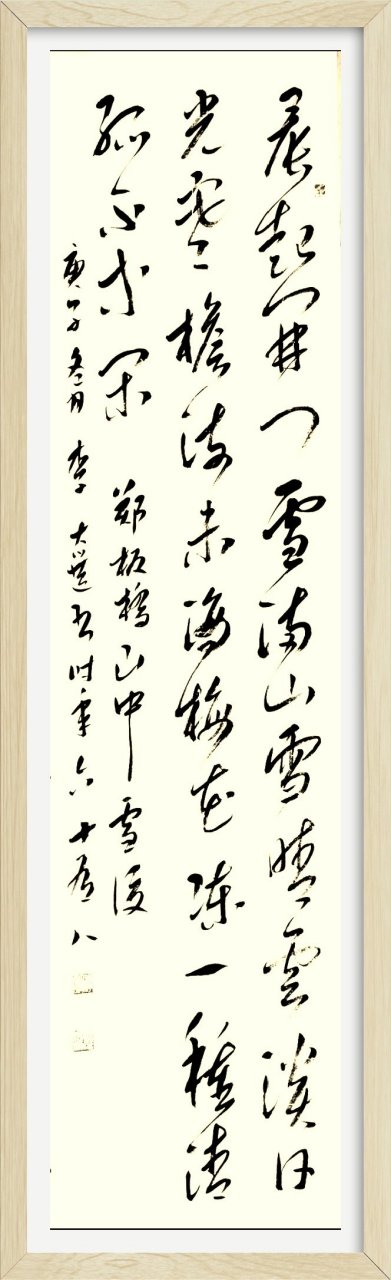 晨起開門雪滿山雪晴雲淡日
光寒檐流未滴梅花凍一種清
孤不等閑
鄭板橋山中雪後
庚子冬月李大選书时年六十有八